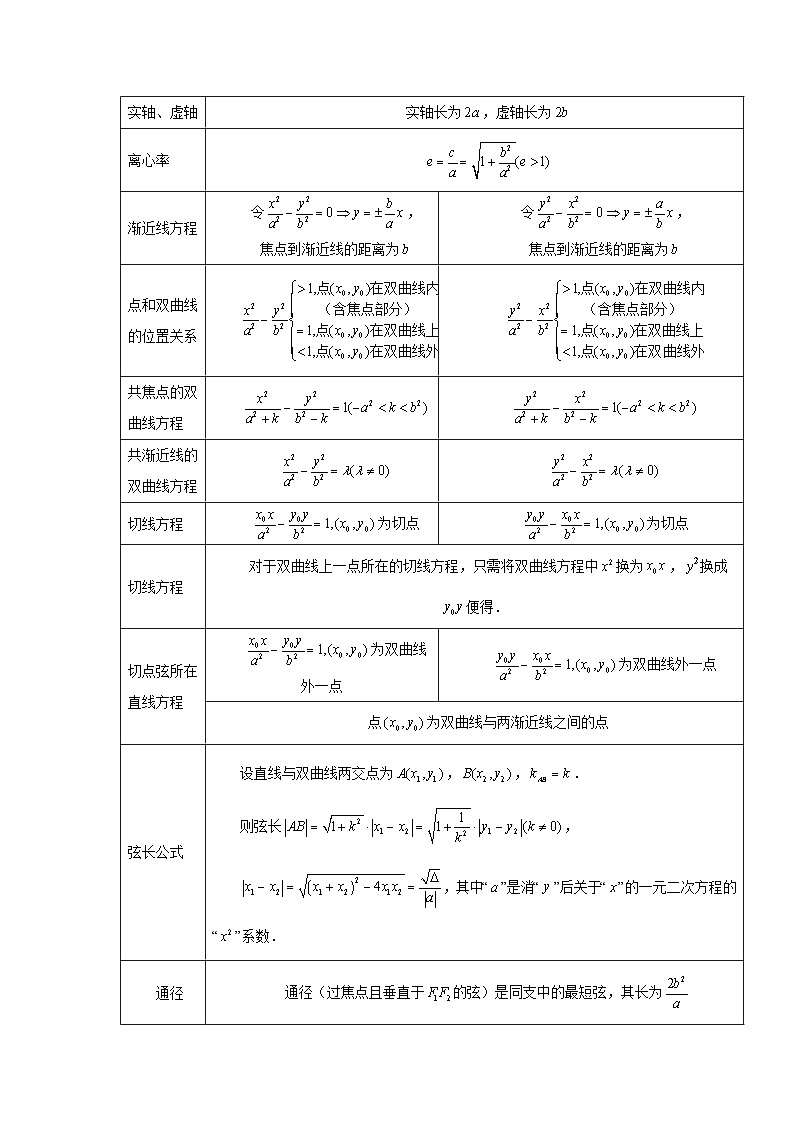 实轴、虚轴 实轴长为 2a，虚轴长为 2b
离心率 e = c/a = √(1 + b²/a²) (e >1)
渐近线方程
令 x²/a² − y²/b² = 0 ⇒ y = ± b/a x，
焦点到渐近线的距离为 b
令 y²/a² − x²/b² = 0 ⇒ y = ± a/b x，
焦点到渐近线的距离为 b
点和双曲线
的位置关系
x²/a² − y²/b² { >1,点(x₀, y₀)在双曲线内
（含焦点部分）
=1,点(x₀, y₀)在双曲线上
<1,点(x₀, y₀)在双曲线外
y²/a² − x²/b² { >1,点(x₀, y₀)在双曲线内
（含焦点部分）
=1,点(x₀, y₀)在双曲线上
<1,点(x₀, y₀)在双曲线外
共焦点的双
曲线方程
x²/(a² + k) − y²/(b² − k) = 1(−a² < k < b²)
y²/(a² + k) − x²/(b² − k) = 1(−a² < k < b²)
共渐近线的
双曲线方程
x²/a² − y²/b² = λ(λ ≠ 0)
y²/a² − x²/b² = λ(λ ≠ 0)
切线方程
x₀x/a² − y₀y/b² = 1,(x₀, y₀) 为切点
y₀y/a² − x₀x/b² = 1,(x₀, y₀) 为切点
切线方程
对于双曲线上一点所在的切线方程，只需将双曲线方程中 x² 换为 x₀x，y² 换成
y₀y 便得．
切点弦所在
直线方程
x₀x/a² − y₀y/b² = 1,(x₀, y₀) 为双曲线
外一点
y₀y/a² − x₀x/b² = 1,(x₀, y₀) 为双曲线外一点
点 (x₀, y₀) 为双曲线与两渐近线之间的点
弦长公式
设直线与双曲线两交点为 A(x₁, y₁)，B(x₂, y₂)，k_AB = k．
则弦长 |AB| = √(1+k²) · |x₁ − x₂| = √(1 + 1/k²) · |y₁ − y₂|(k ≠ 0)，
|x₁ − x₂| = √((x₁ + x₂)² − 4x₁x₂) = √Δ/|a|，其中“a”是消“y”后关于“x”的一元二次方程的
“x²”系数．
通径 通径（过焦点且垂直于 F₁F₂ 的弦）是同支中的最短弦，其长为 2b²/a